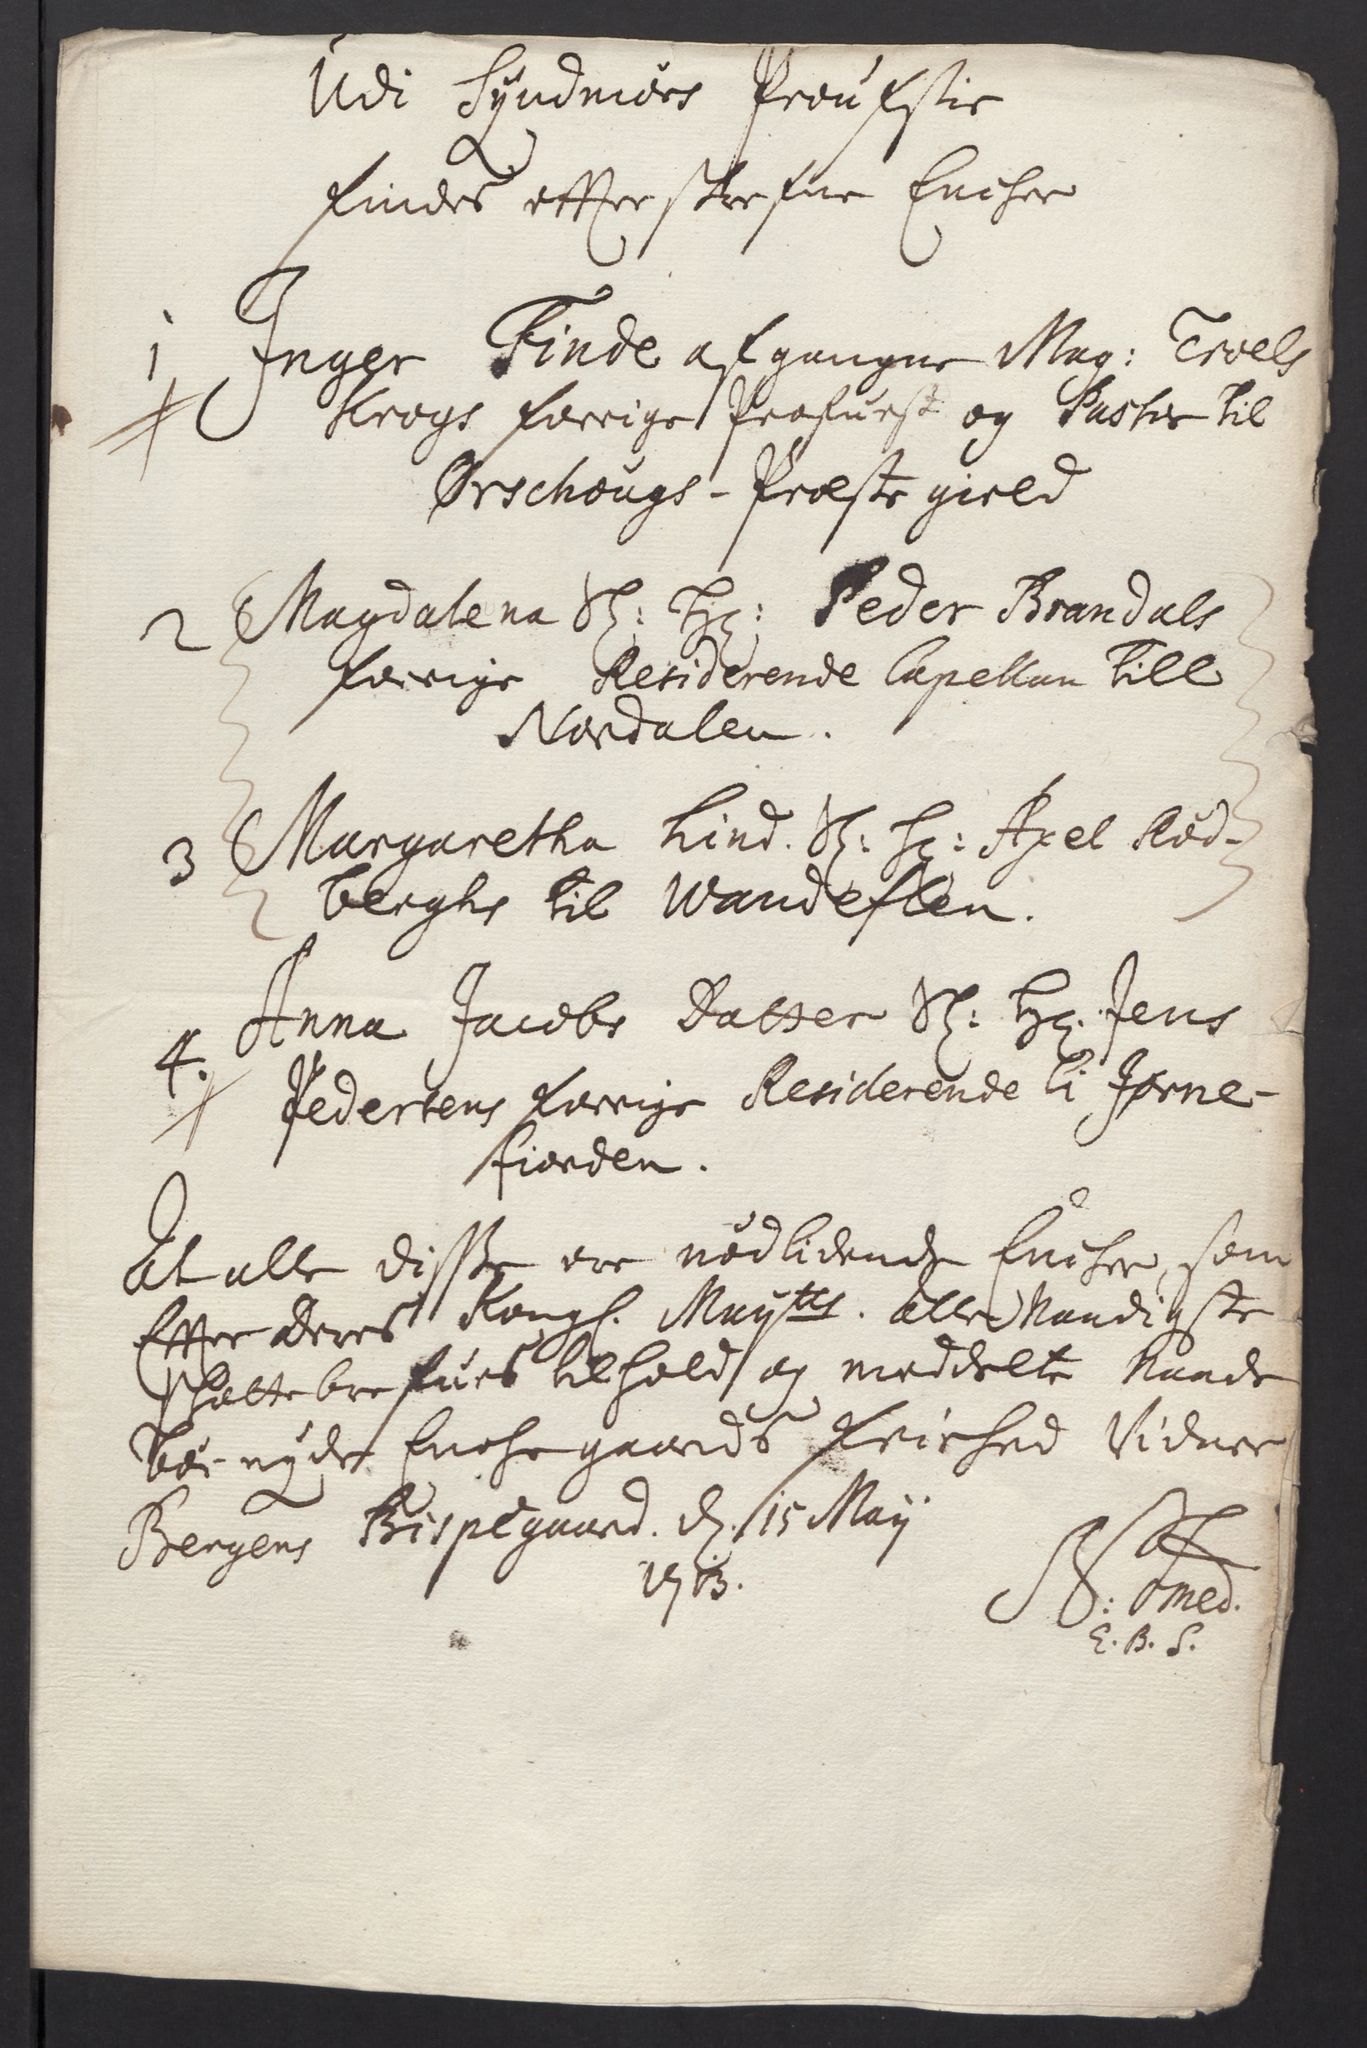 Udi Syndmørs Proustie
findes effterskrefne Encher
1 Inger Finde afgangne Mag: Troels
Krogs forrige Profuest og Pastor til
Ørschougs-Præste gield
2 Magdalena Sl: Hr: Peder Brandals
forrige Residerende Capellan till
Nordalen.
3 Margaretha Lind. Sl: Hr: Axel Rød-
berghs til Wandeflen.
4. Anna Jacobs Datter Sl: Hr. Jens
Pedersens forrige Residerende ti Jørne-
fiorden.
At alle disse ere nødlidende Encher, som
Effter Deres Kongl. Maytts. aller Naadigste
schatte brefues tilhold og meddelte Naade
bør nyde Enche gaards friehed Vidner
Bergens Bispegaard. d. 15 May
1713.
N: Smed.
E. B. S.